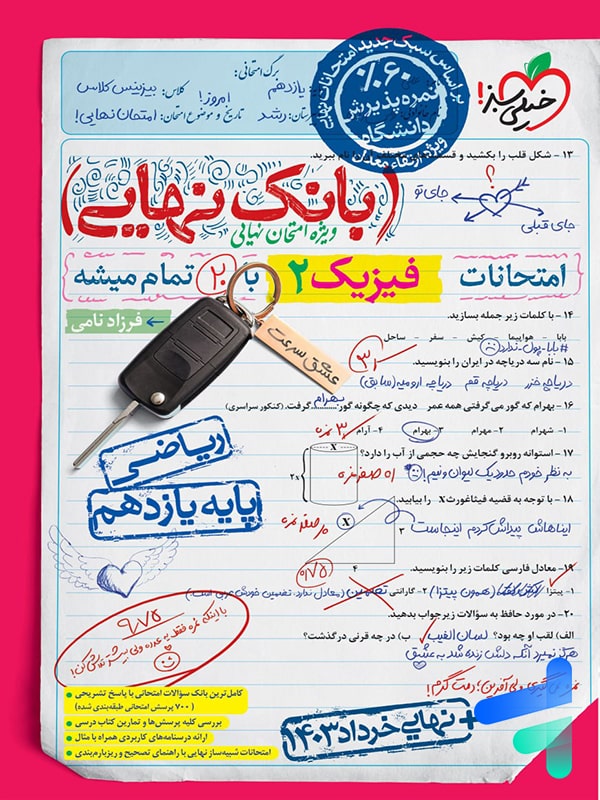 برگ امتحانی:
یازدهم
کلاس: بیزینس کلاس
امروز!
رشد
تاریخ و موضوع امتحان: امتحان نهایی!
بر اساس سبک جدید امتحانات نهایی
٪۶۰
نمره پذیرش
دانشگاه
ویژه ارتقاء معدل
خیلی سبز!
۱۳- شکل قلب را بکشید و
نام ببرید.
جای تو
؟
جای قبلی
(بانک نهایی)
ویژه امتحان نهایی
امتحانات فیزیک ۲ با ۲۰ تمام میشه
فرزاد نامی
عشق سرعت
۱۴- با کلمات زیر جمله بسازید.
بابا - هواپیما - کیش - سفر - ساحل
#بابا_پول_ندارد
۱۵- نام سه دریاچه در ایران را بنویسید.
دریاچه خزر دریاچه قم دریاچه ارومیه (سابق)
۱۶- بهرام که گور می گرفتی همه عمر دیدی که چگونه گور بهرام گرفت. (کنکور سراسری)
۱- شهرام ۲- مهرام ۳- بهرام ۴- آرام
۱۷- استوانه روبرو گنجایش چه حجمی از آب را دارد؟
به نظر خودم حدود یک لیوان و نیم!
X
2X
۱۸- با توجه به قضیه فیثاغورث X را بیابید.
ایناهاش پیداش کردم اینجاست
X
۳
۴
۱۹- معادل فارسی کلمات زیر را بنویسید.
۱- پیتزا (همون پیتزا) ۲- گارانتی تضمین (معادل ندارد، تضمین خودش عربی است)
۲۰- در مورد حافظ به سؤالات زیر جواب بدهید.
الف) لقب او چه بود؟ لسان الغیب ب) در چه قرنی در گذشت؟
هرگز نمیرد آنکه دلش زنده شد به عشق
ریاضی
پایه یازدهم
۹/۷۵
با اینکه نمره فقط یه عدده ولی بیشتر تلاش کن!
کامل‌ترین بانک سؤالات امتحانی با پاسخ تشریحی
(۷۰۰ پرسش امتحانی طبقه‌بندی شده)
بررسی کلیه پرسش‌ها و تمارین کتاب درسی
ارائه درسنامه‌های کاربردی همراه با مثال
امتحانات شبیه‌ساز نهایی با راهنمای تصحیح و ریزبارم‌بندی
+ نهایی خرداد ۱۴۰۳